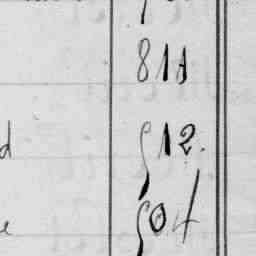 811
d 512.
e 504